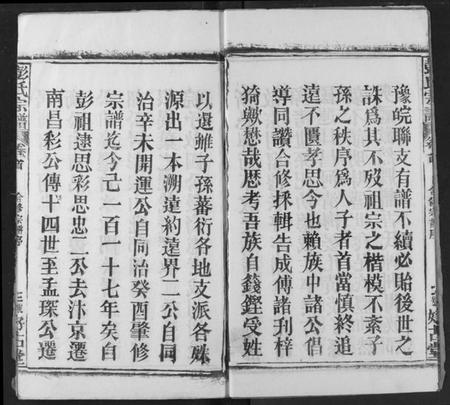 豫皖聯支有譜不續必貽後世之
誅爲其不歿祖宗之楷模不紊子
孫之秩序爲人子者首當慎終追
遠不匱孝思今也賴族中諸公倡
導同讚合修採輯告成傳諸刊梓
猗歟懋哉歷考吾族自籛鏗受姓
以還雖子孫蕃衍各地支派各殊
源出一本溯遠約遠界二公自同
治辛未開運公自同治癸酉肇修
宗譜迄今已一百一十七年矣自
彭祖建思彩思忠二公去汴京遷
南昌彩公傳十四世至孟琛公遷
彭氏宗譜
卷首
合修宗譜序
三
好古堂